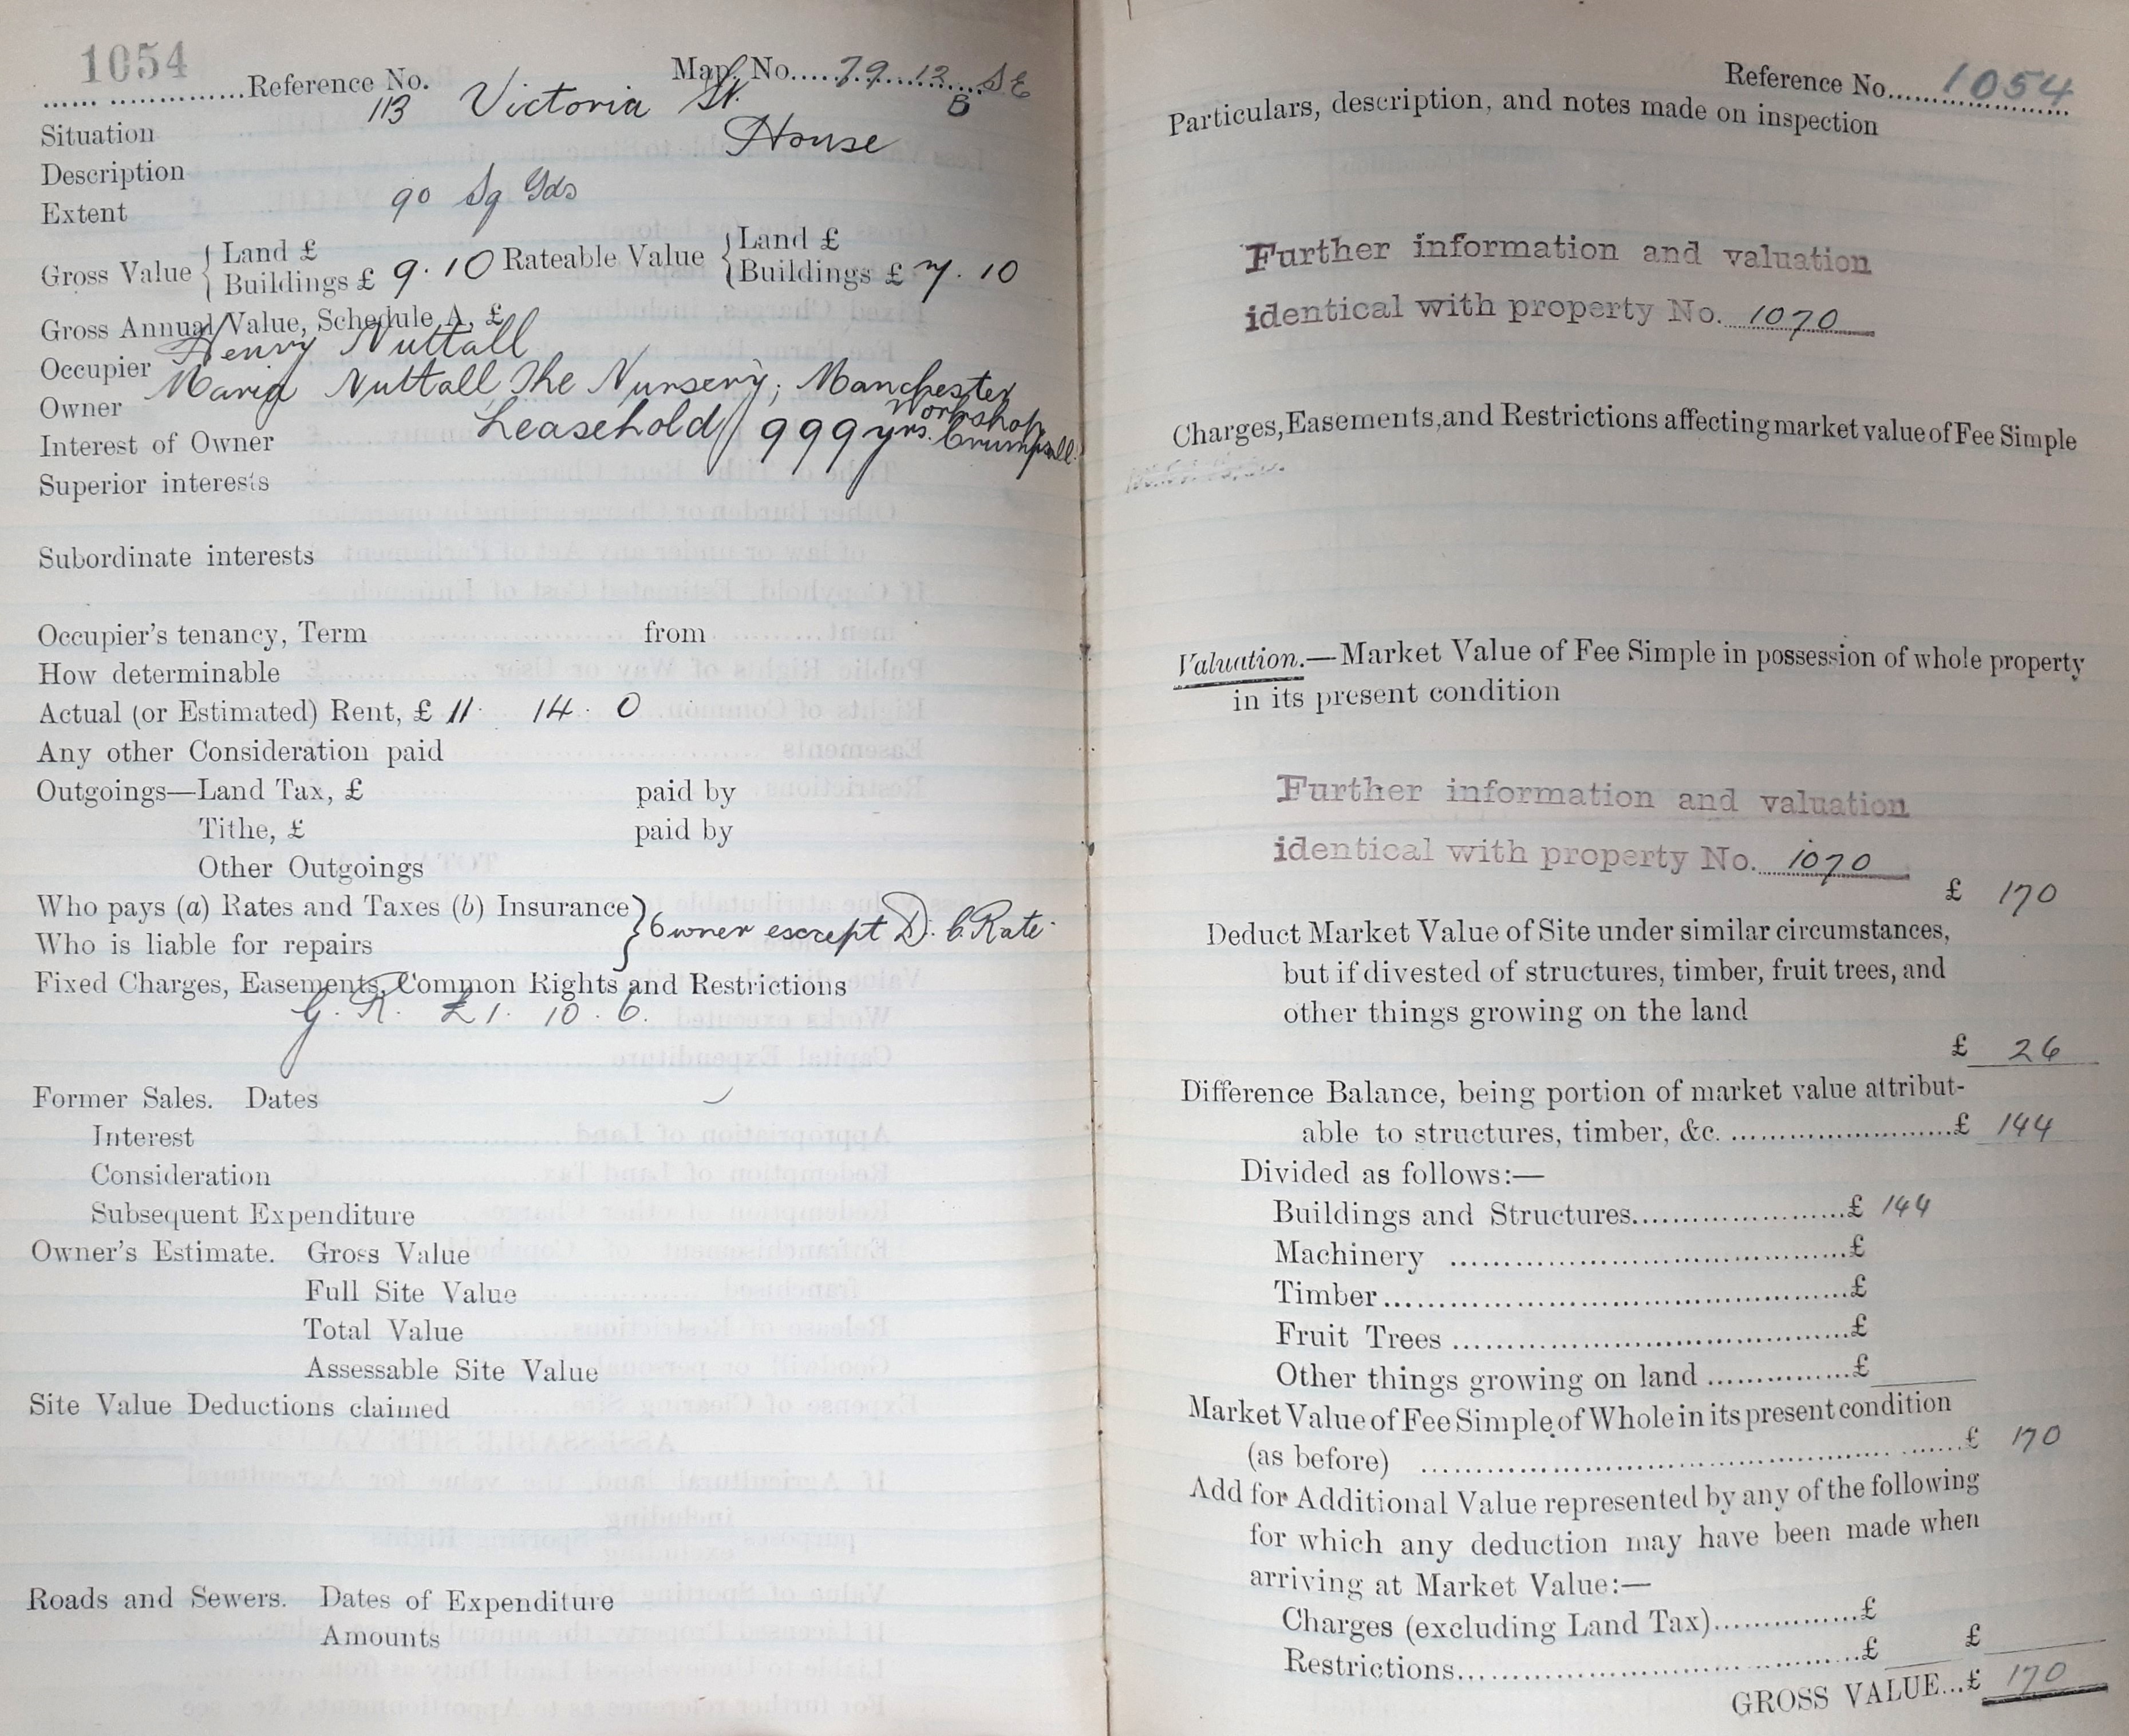 1054
Reference No. Map. No. 79.13 SE
B
Situation 113 Victoria St.
Description House
Extent 90 Sq Yds
Gross Value { Land £ Rateable Value { Land £
Buildings £ 9.10 Buildings £ 7.10
Gross Annual Value, Schedule A, £
Occupier Henry Nuttall
Owner Maria Nuttall, The Nursery, Manchester
Workshop Crumpsall
Interest of Owner Leasehold / 999 yrs.
Superior interests
Subordinate interests
Occupier's tenancy, Term from
How determinable
Actual (or Estimated) Rent, £ 11. 14. 0
Any other Consideration paid
Outgoings—Land Tax, £ paid by
Tithe, £ paid by
Other Outgoings
Who pays (a) Rates and Taxes (b) Insurance
Who is liable for repairs } Owner except D. C. Rate.
Fixed Charges, Easements, Common Rights and Restrictions
G. R. £1. 10. 6.
Former Sales. Dates
Interest
Consideration
Subsequent Expenditure
Owner's Estimate. Gross Value
Full Site Value
Total Value
Assessable Site Value
Site Value Deductions claimed
Roads and Sewers. Dates of Expenditure
Amounts
Reference No. 1054
Particulars, description, and notes made on inspection
Further information and valuation
identical with property No. 1070
Charges, Easements, and Restrictions affecting market value of Fee Simple
Valuation.—Market Value of Fee Simple in possession of whole property
in its present condition
Further information and valuation
identical with property No. 1070
£ 170
Deduct Market Value of Site under similar circumstances,
but if divested of structures, timber, fruit trees, and
other things growing on the land
£ 26
Difference Balance, being portion of market value attribut-
able to structures, timber, &c. £ 144
Divided as follows:—
Buildings and Structures £ 144
Machinery £
Timber £
Fruit Trees £
Other things growing on land £
Market Value of Fee Simple of Whole in its present condition
(as before) £ 170
Add for Additional Value represented by any of the following
for which any deduction may have been made when
arriving at Market Value:—
Charges (excluding Land Tax) £
Restrictions £ £
GROSS VALUE...£ 170